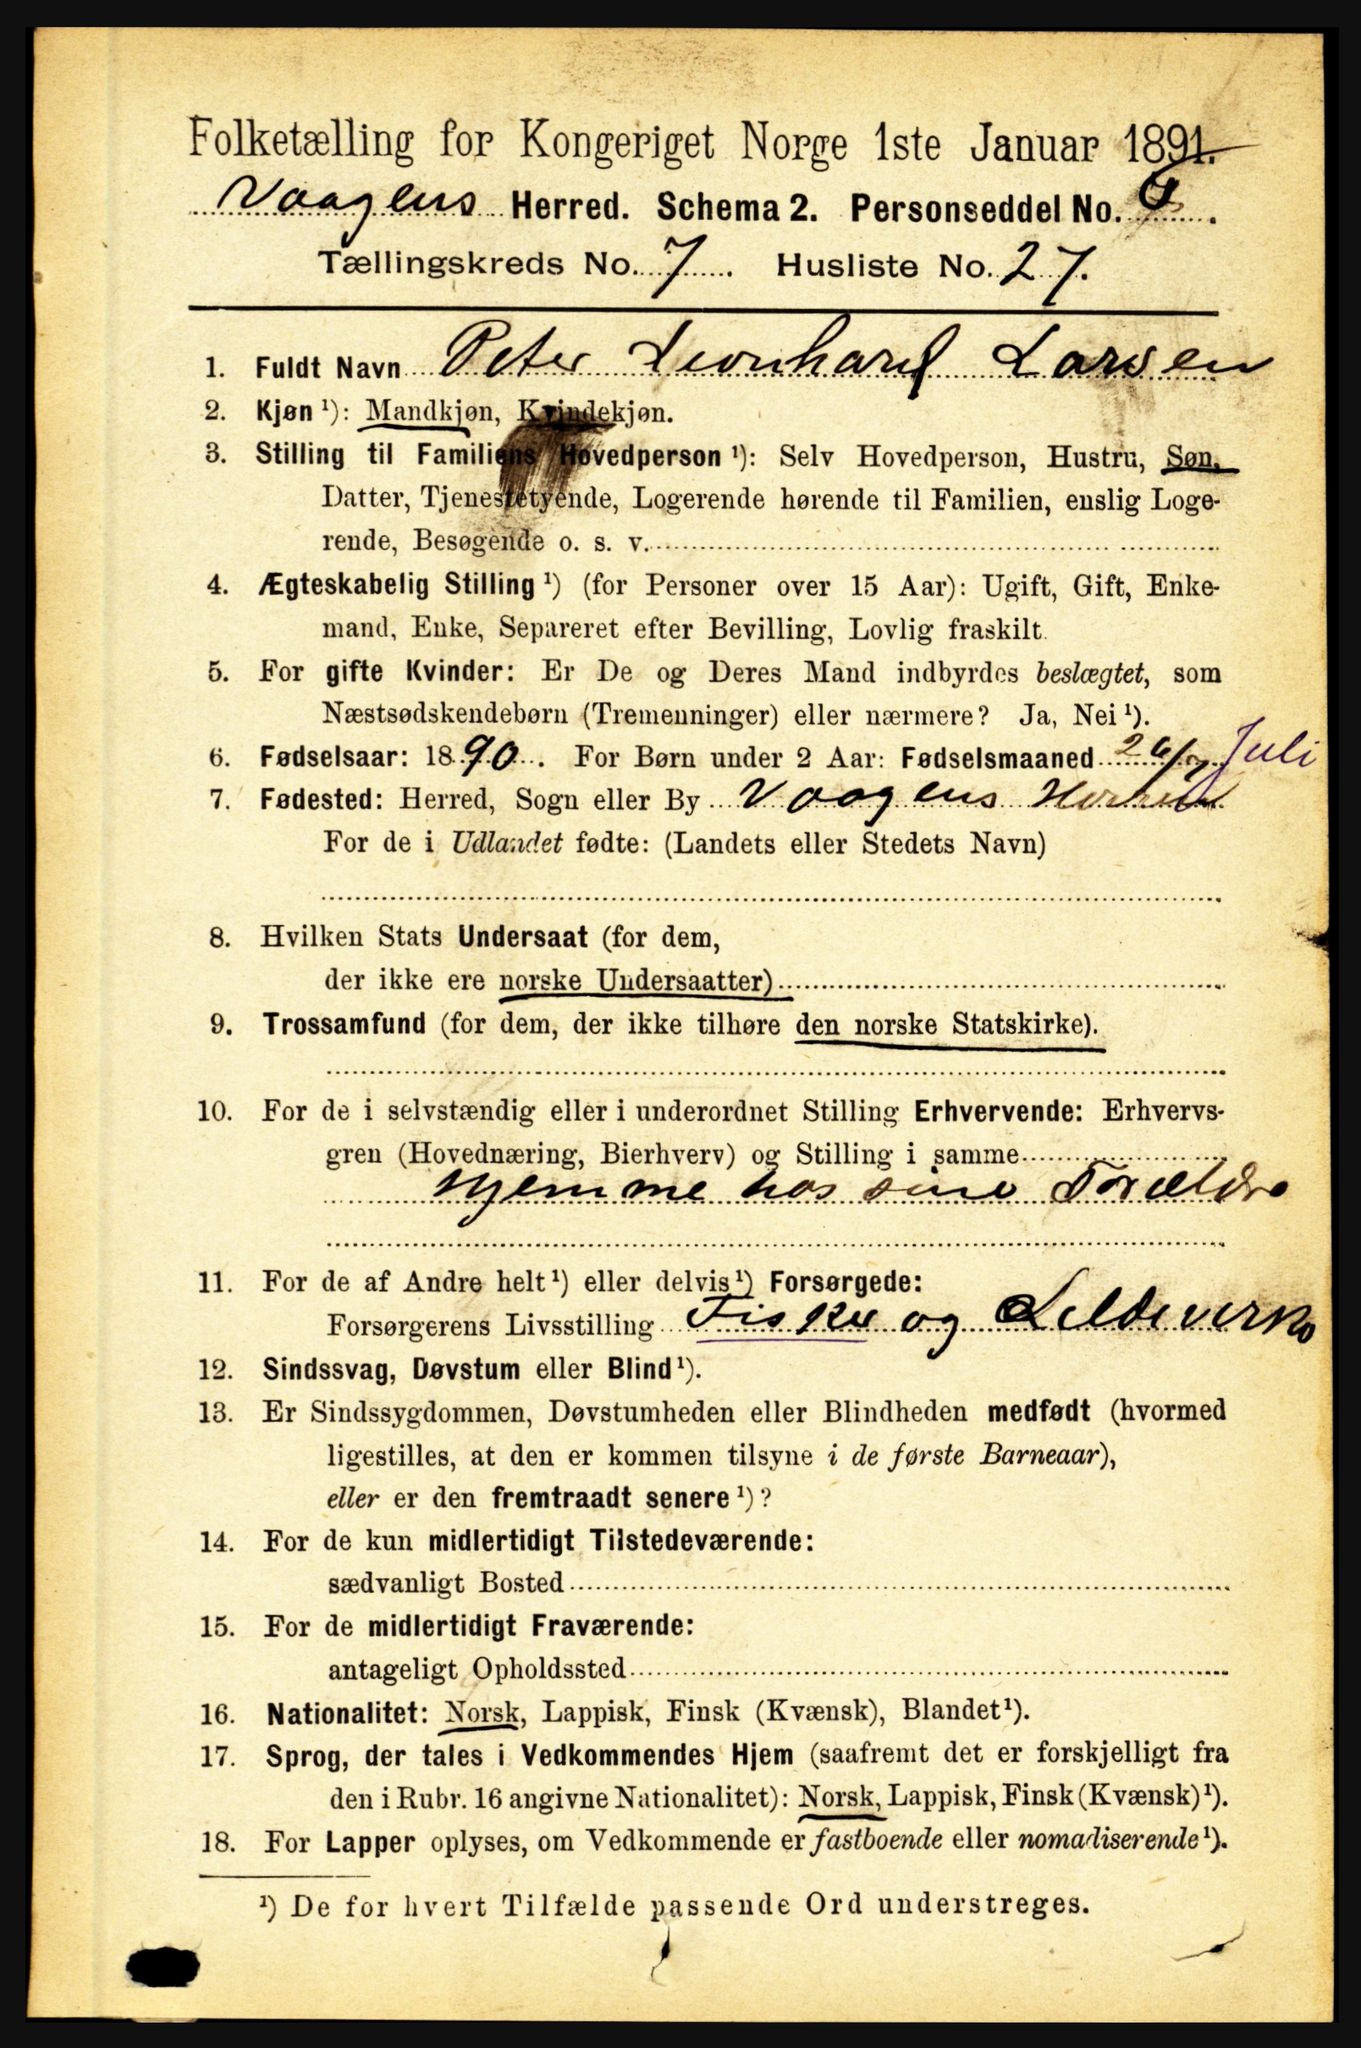 Folketælling for Kongeriget Norge 1ste Januar 1891.
Vaagens Herred. Schema 2. Personseddel No. .
Tællingskreds No. 7 . Husliste No. 27.
1. Fuldt Navn Peter Leonhard Larsen
2. Kjøn ¹): Mandkjøn, Kvindekjøn.
3. Stilling til Familiens Hovedperson ¹): Selv Hovedperson, Hustru, Søn,
Datter, Tjenestetyende, Logerende hørende til Familien, enslig Loge-
rende, Besøgende o. s. v.
4. Ægteskabelig Stilling ¹) (for Personer over 15 Aar): Ugift, Gift, Enke-
mand, Enke, Separeret efter Bevilling, Lovlig fraskilt.
5. For gifte Kvinder: Er De og Deres Mand indbyrdes beslægtet, som
Næstsødskendebørn (Tremenninger) eller nærmere? Ja, Nei ¹).
6. Fødselsaar: 1890. For Børn under 2 Aar: Fødselsmaaned 26/7 Juli
7. Fødested: Herred, Sogn eller By Vaagens Herred
For de i Udlandet fødte: (Landets eller Stedets Navn)
8. Hvilken Stats Undersaat (for dem,
der ikke ere norske Undersaatter)
9. Trossamfund (for dem, der ikke tilhøre den norske Statskirke).
10. For de i selvstændig eller i underordnet Stilling Erhvervende: Erhvervs-
gren (Hovednæring, Bierhverv) og Stilling i samme
Hjemme hos sine Forældre
11. For de af Andre helt ¹) eller delvis ¹) Forsørgede:
Forsørgerens Livsstilling Fisker og
12. Sindssvag, Døvstum eller Blind ¹).
13. Er Sindssygdommen, Døvstumheden eller Blindheden medfødt (hvormed
ligestilles, at den er kommen tilsyne i de første Barneaar),
eller er den fremtraadt senere ¹)?
14. For de kun midlertidigt Tilstedeværende:
sædvanligt Bosted
15. For de midlertidigt Fraværende:
antageligt Opholdssted
16. Nationalitet: Norsk, Lappisk, Finsk (Kvænsk), Blandet ¹).
17. Sprog, der tales i Vedkommendes Hjem (saafremt det er forskjelligt fra
den i Rubr. 16 angivne Nationalitet): Norsk, Lappisk, Finsk (Kvænsk) ¹).
18. For Lapper oplyses, om Vedkommende er fastboende eller nomadiserende ¹).
¹) De for hvert Tilfælde passende Ord understreges.